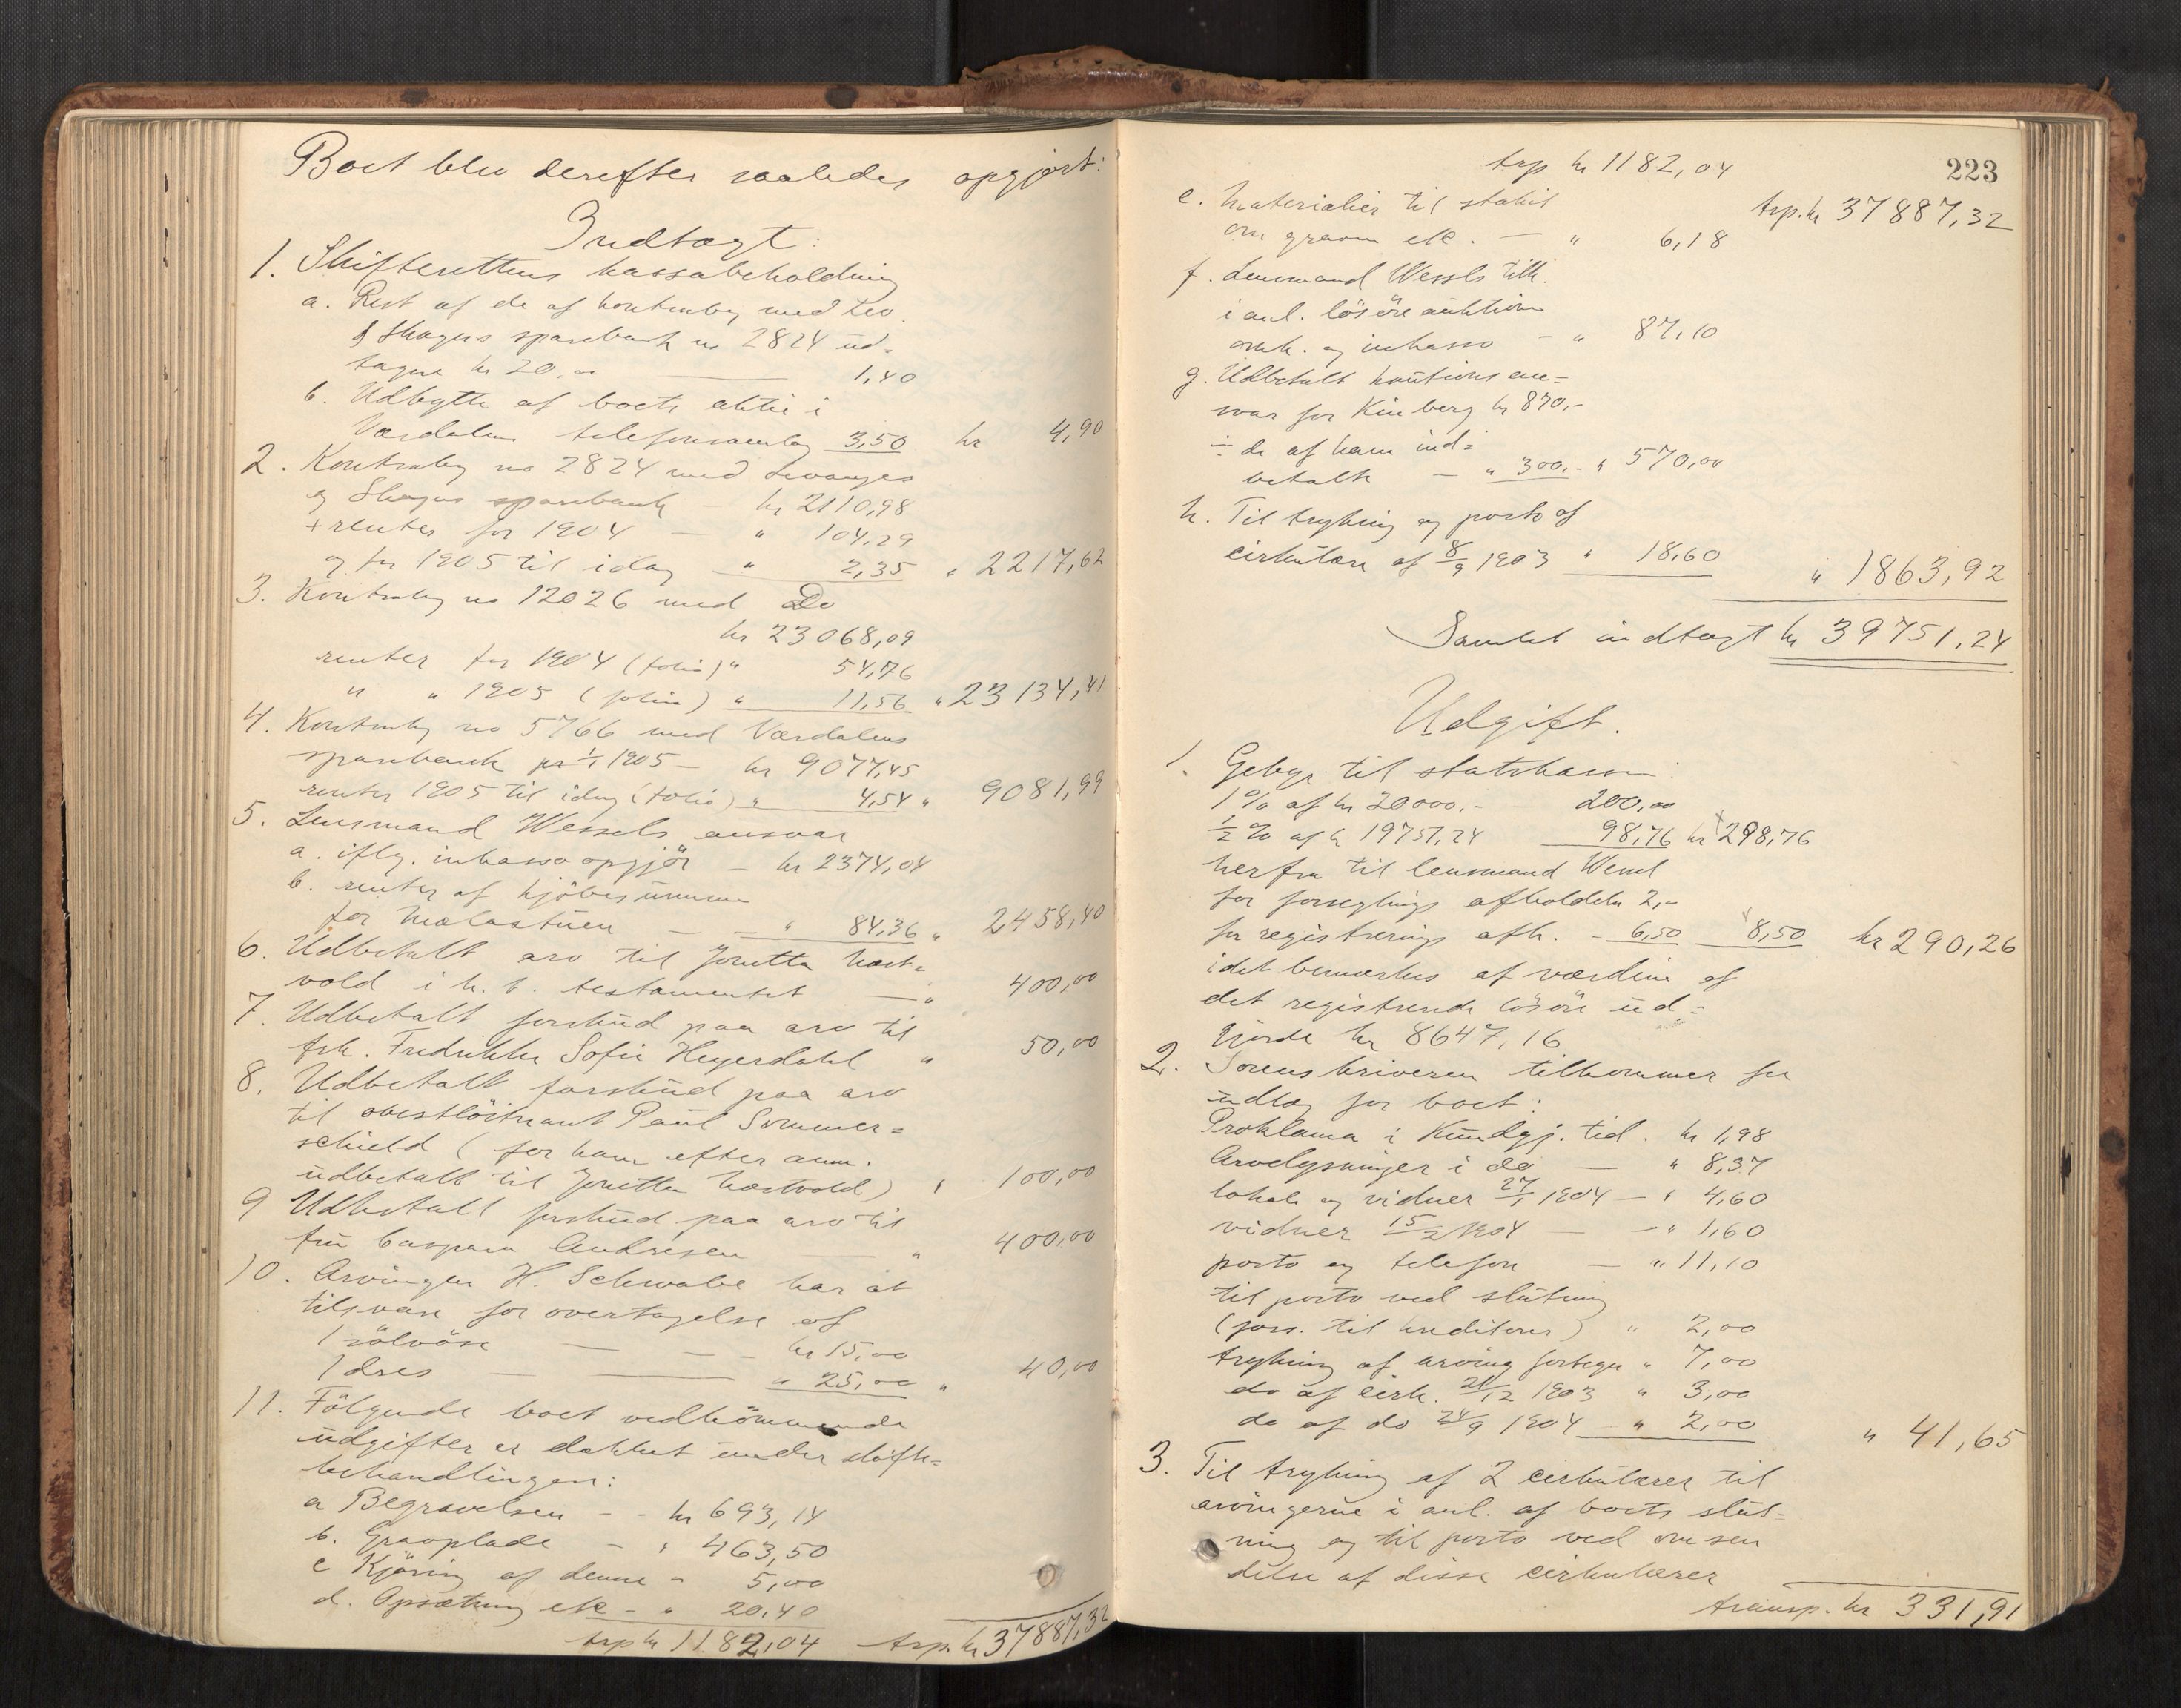 Boet blev derefter saaledes opgjort:
Indtægt:
1. Skifterettens kassabeholdning
a. Rest af de af kontrabog med Lev.
& Skogns sparebank no 2824 ud-
tagne kr 20,00 — 1,40
b. Udbytte af boets aktie i
Værdalens telefonsamlag 3,50 kr 4,90
2. Kontrabog no 2824 med Levanger
og Skogns sparebank - kr 2110,98
+ renter for 1904 — " 104,29
og for 1905 til idag " 2,35 " 2217,62
3. Kontrabog no 12026 med Do
kr 23068,09
renter for 1904 (folio) " 54,76
" " 1905 (folio) " 11,56 " 23134,41
4. Kontrabog no 5766 med Værdalens
sparebank pr 1/1 1905 - kr 9077,45
renter 1905 til idag (folio) " 4,54 " 9081,99
5. Lensmand Wessels ansvar
a. iflg. inkassoopgjör - kr 2374,04
b. renter af kjöbesummen
for Mælastuen — " 84,36 " 2458,40
6. Udbetalt arv til Jonetta Hast-
vold i h. t. testamentet — " 400,00
7. Udbetalt forskud paa arv til
frk. Fredrikke Sofie Heyerdahl " 50,00
8. Udbetalt forskud paa arv
til oberstlöitnant Paul Sommer-
schield (for ham efter anm.
udbetalt til Jonetta Hastvold) " 100,00
9 Udbetalt forskud paa arv til
fru Caspara Andresen — " 400,00
10. Arvingen H. Schwabe har at
tilsvare for overtagelse af
1 sölvöse — kr 15,00
1 dres — " 25,00 " 40,00
11. Fölgende boet vedkömmende
udgifter er dækket under skifte-
behandlingen:
a Begravelsen - - kr 693,14
b. Gravplade - " 463,50
c Kjöring af denne " 5,00
d. Opsætning etc - " 20,40
trp kr 1182,04 trsp. kr 37887,32
223
trp kr 1182,04
trsp. kr 37887,32
e. Materialier til stakit
om graven etc. — " 6,18
f. Lensmand Wessels tilk.
i anl. lösöre auktion
omk. og inkasso - " 87,10
g. Udbetalt kautionsan-
svar for Kinberg kr 870,-
÷ de af ham ind-
betalte — " 300,- " 570,00
h. Til trykning og porto af
cirkulære af 8/9 1903 " 18,60 " 1863,92
Samlet indtægt kr 39751,24
Udgift.
1. Gebyr til statskassen:
1% af kr 20000,- 200,00
1/2 % af kr 19751,24 98,76 kr 298,76
herfra til lensmand Wessel
for forseglings afholdelse 2,-
for registrerings afh. - 6,50 8,50 kr 290,26
idet bemærkes at værdien af
det registrerede lösöre ud-
gjorde kr 8647,16
2. Sorenskriveren tilkommer for
udlæg for boet:
Proklama i Kundgj. tid. kr 1,98
Arvelysninger i do — " 8,37
lokale og vidner 27/1 1904 — " 4,60
vidner 15/2 1904 — " 1,60
porto og telefon — " 11,10
til porto ved slutning
(pass. til kreditorer) " 2,00
trykning af arving fortegn " 7,00
do af cirk. 21/12 1903 " 3,00
do af do 24/9 1904 " 2,00 " 41,65
3. Til trykning af 2 cirkulærer til
arvingerne i anl. af boets slut-
ning og til porto ved omsen
delse af disse cirkulærer
transp. kr 331,91